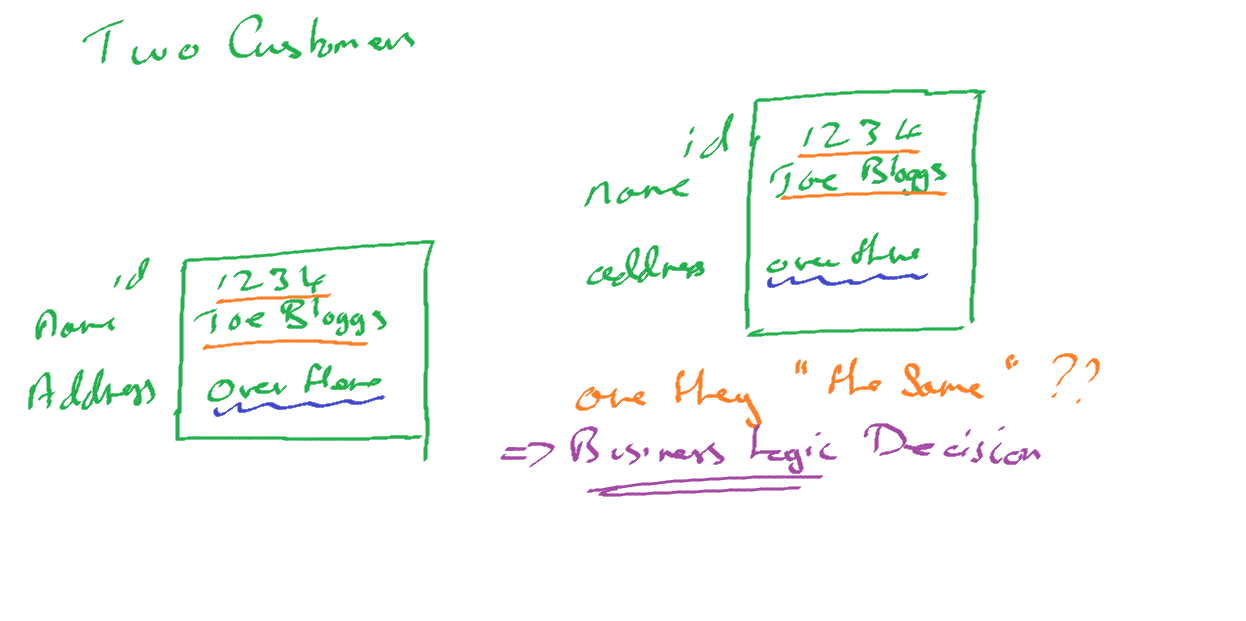 Two Customers
id 1234
name Joe Bloggs
address over there
id 1234
Name Joe Bloggs
Address Over there
are they "the same" ??
=> Business Logic Decision